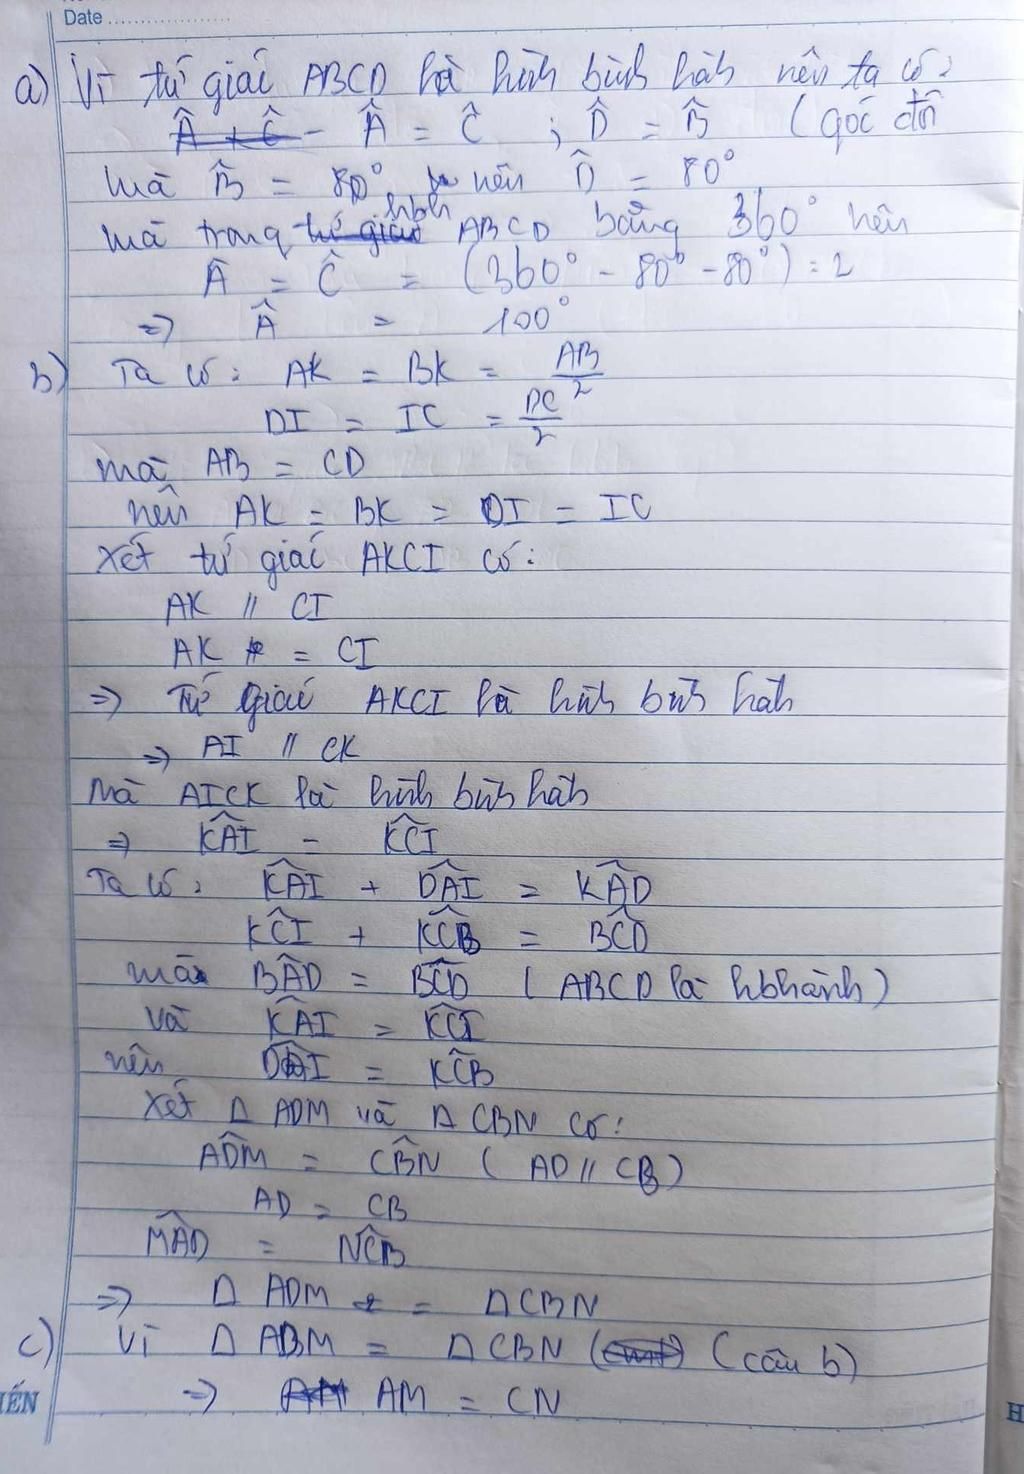 Date
a) Vì tứ giác ABCD là hình bình hành nên ta có:
Â + Ĉ - Â = Ĉ ; D̂ = B̂ ( góc đối
mà B̂ = 80° nên D̂ = 80°
mà trong tứ giác hbh ABCD bằng 360° nên
Â = Ĉ = (360° - 80° - 80°) : 2
=> Â = 100°
b) Ta có: AK = BK = AB/2
DI = IC = DC/2
mà AB = CD
nên AK = BK = DI = IC
Xét tứ giác AKCI có:
AK // CI
AK = CI
=> Tứ giác AKCI là hình bình hành
=> AI // CK
Mà AICK là hình bình hành
=> K̂AI = K̂CI
Ta có: K̂AI + D̂AI = K̂AD
K̂CI + K̂CB = B̂CD
mà B̂AD = B̂CD ( ABCD là hbhành )
và K̂AI = K̂CI
nên D̂AI = K̂CB
Xét Δ ADM và Δ CBN có:
ÂDM = ĈBN ( AD // CB )
AD = CB
M̂AD = N̂CB
=> Δ ADM = Δ CBN
c) Vì Δ ABM = Δ CBN (câu b)
=> AM AM = CN
IẾN
H